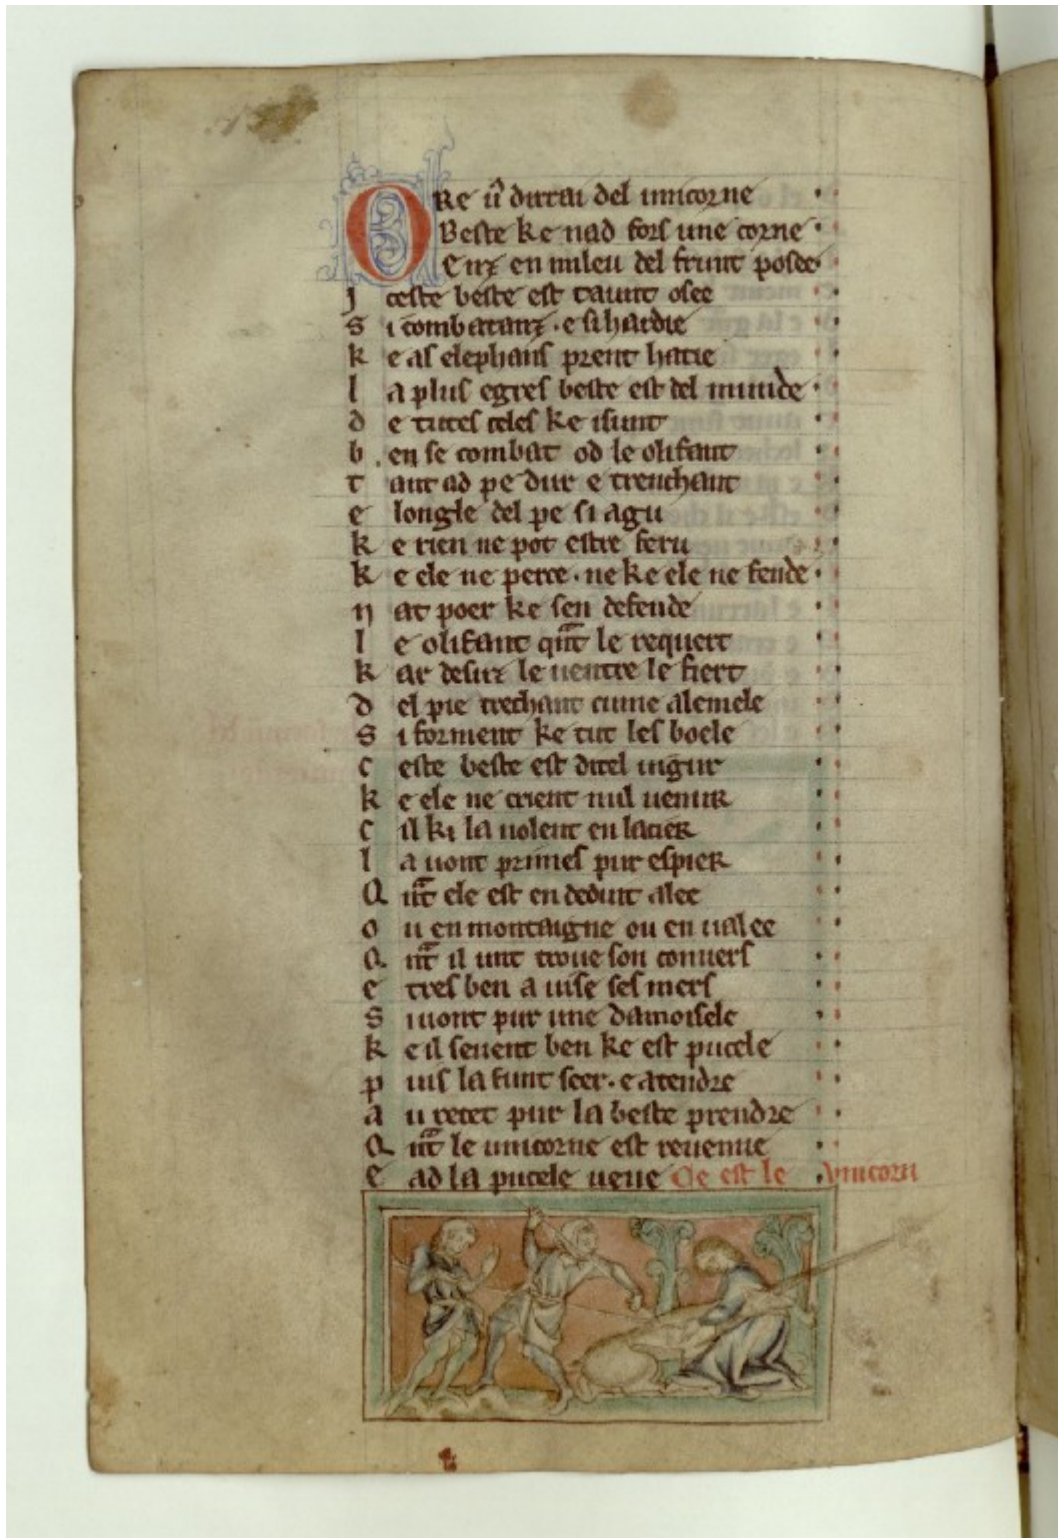 ORe uͥ dirrai del unicorne
Beste ke nad fors une corne
Enz en mileu del frunt posee
j ceste beste est taunt osee
s i combatanz · e si hardie
k e as elephans prent hatie
l a plus egres beste est del munde
d e tutes celes ke i sunt
b en se combat od le olifant
t ant ad pe dur e trenchant
e longle del pe si agu
k e rien ne pot estre feru
k e ele ne perce · ne ke ele ne fende
n at poer ke sen defende
l e olifant qͣnt le requert
k ar desuz le uentre le fiert
d el pie trechant cume alemele
s i forment ke tut les boele
c este beste est ditel uigur
k e ele ne crient nul uenur
c il ki la uolent en lacier
l a uont primes pur espier
Q ͣnt ele est en deduit alee
o u en montaigne ou en ualee
Q ͣnt il unt troue son conuers
e tres ben a uise ses mers
s i uont pur une damoisele
k e il seuent ben ke est pucele
p uis la funt seer · e atendre
a u recet pur la beste prendre
Q ͣnt le unicorne est reuenue
e ad la pucele ueue Ce est le vnicorn